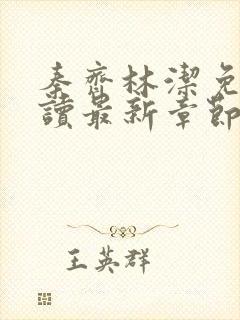 秦齊林潔免
讀最新章節
王英群